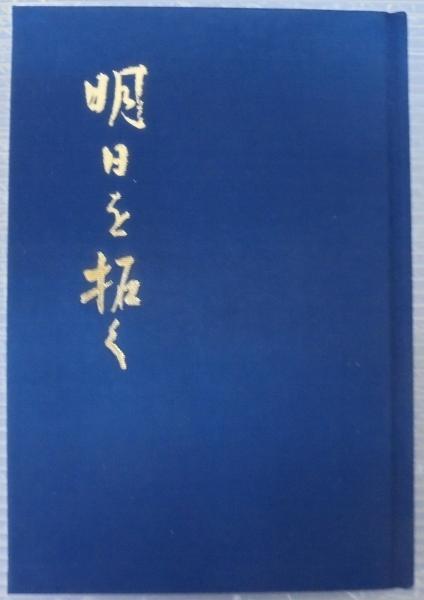 明日を拓く